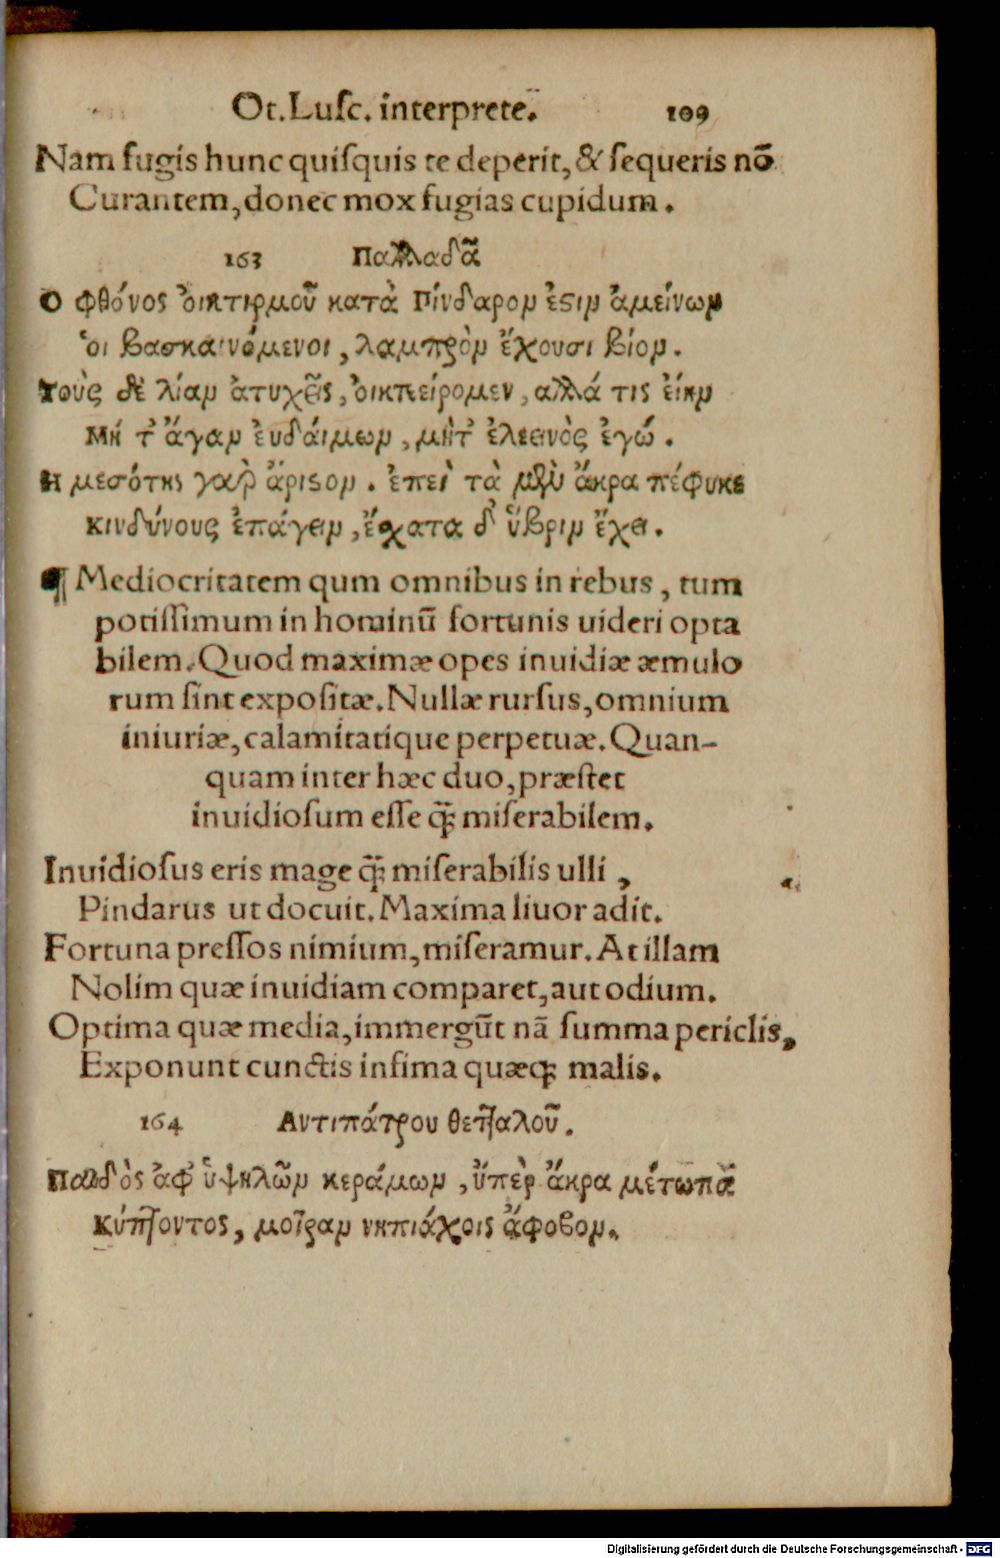 Ot. Luſc. interprete. 109
Nam fugis hunc quiſquis te deperit, & ſequeris nõ
Curantem, donec mox fugias cupidum.
163 Παλλαδᾶ
Ο φθόνος ὀικτιρμοῦ κατὰ Πίνδαρον ἐϛιν ἀμείνων
ὁι βασκαινόμενοι, λαμπρὸν ἔχουσι βίον.
Τοὺς δὲ λίαν ἀτυχεῖς, ὀικτείρομεν, αλλά τις ἐίην
Μή τ' ἄγαν ἐυδάιμων, μήτ' ἐλεεινὸς ἐγώ.
Η μεσότης γαρ ἄριϛον. ἐπεὶ τὰ μὲν ἄκρα πέφυκε
κινδύνους ἐπάγειν, ἔχατα δ' ὕβριν ἔχει.
¶ Mediocritatem qum omnibus in rebus, tum
potiſſimum in hominũ fortunis uideri opta
bilem. Quod maximæ opes inuidiæ æmulo
rum ſint expoſitæ. Nullæ rurſus, omnium
iniuriæ, calamitatique perpetuæ. Quan-
quam inter hæc duo, præſtet
inuidioſum eſſe q̃ꝫ miſerabilem.
Inuidioſus eris mage q̃ꝫ miſerabilis ulli,
Pindarus ut docuit. Maxima liuor adit.
Fortuna preſſos nimium, miſeramur. At illam
Nolim quæ inuidiam comparet, aut odium.
Optima quæ media, immergũt nã ſumma periclis,
Exponunt cunctis infima quæqꝫ malis.
164 Αντιπάτρου θετΊαλοῦ.
Παιδὸς ἀφ' ὑψηλῶν κεράμων, ὕπὲρ ἄκρα μέτωπα
Κύπτοντος, μοῖραν νηπιάχοις ἄφοβον.
Digitalisierung gefördert durch die Deutsche Forschungsgemeinschaft - DFG